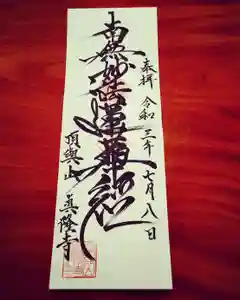 奉拝 令和三年七月八日
南無妙法蓮華経
頂輿山 真隆寺